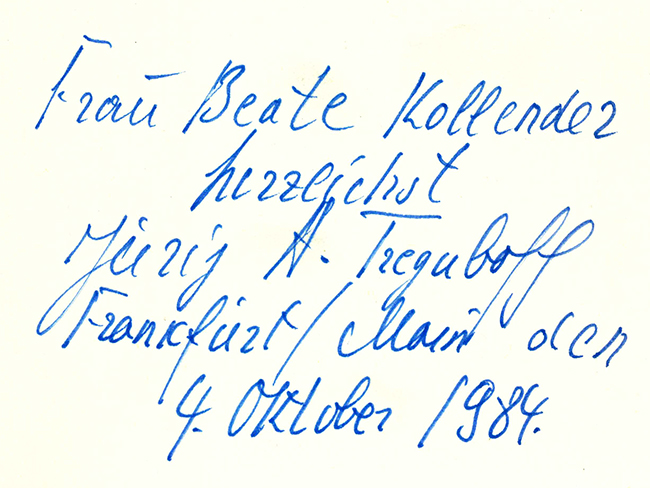 Frau Beate Kollender
herzlichst
Jurij A. Treguboff
Frankfurt/Main den
4. Oktober 1984.